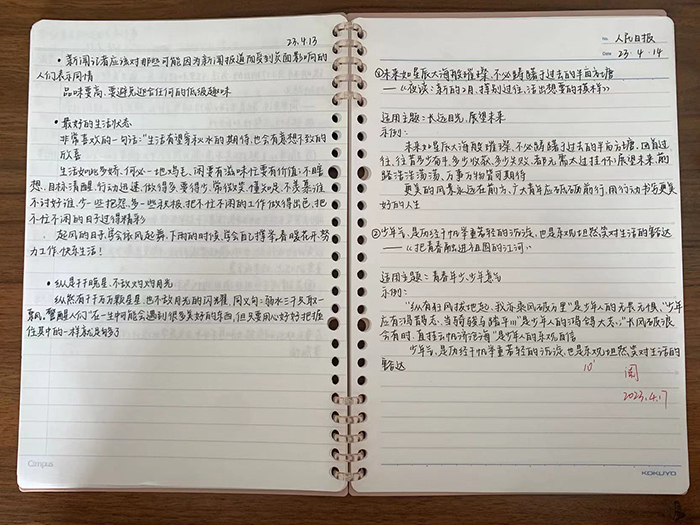 23.4.13
• 新闻记者应该对那些可能因为新闻报道而受到负面影响的
人们表示同情
品味要高,要避免迎合任何的低级趣味
• 最好的生活状态
非常喜欢的一句话:"生活有望穿秋水的期待,也会有意想不到的
欣喜
生活如此多娇,何必一地鸡毛,闲要有滋味忙要有价值;不瞎
想,目标清醒,行动迅速,做得多要得少,常微笑,懂知足,不羡慕谁
不讨好谁,少一些抱怨,多一些积极,把不忙不闲的工作做得出色,把
不忙不闲的日子过得精彩
起风的日子,学会依风起舞,下雨的时候,学会自己撑伞,看暖花开,努
力工作,快乐生活!
• 纵是千千晚星,不敌灼灼月光
纵然有千千万万颗星星,也不敌月光的闪耀,同义句:弱水三千只取一
瓢,警醒人们"在一生中可能会遇到很多美好的东西,但只要用心好好把握
住其中的一样就足够了
Campus
No. 人民日报
Date 23·4·14
①未来如星辰大海般璀璨,不必踌躇于过去的半亩方塘
——《夜读:新的2月,挥别过往,活出想要的模样》
适用主题:长远目光,展望未来
示例:
未来如星辰大海般璀璨,不必踌躇于过去的半亩方塘,回首过
往,往昔多少苟且,多少收获,多少失败,都无需太过挂怀;展望未来,前
路浩浩荡荡,万事万物皆可期待
更美的风景永远在前方,广大青年应砥砺前行,用行动书写更美
好的人生
②少年气,是历经千帆举重若轻的沉淀,也是乐观坦然笑对生活的豁达
——《把青春融进祖国的江河》
适用主题:青春年少,少年意气
示例:
"纵有狂风拔地起,我亦乘风破万里"是少年人的无畏无惧,"少年
应有鸿鹄志,当骑骏马踏平川"是少年人的鸿舒大志,"长风破浪
会有时,直挂云帆济沧海"是少年人的乐观自信
少年气,是历经千帆举重若轻的沉淀,也是乐观坦然笑对生活的
豁达
10'
阅
2023.4.17
KOKUYO